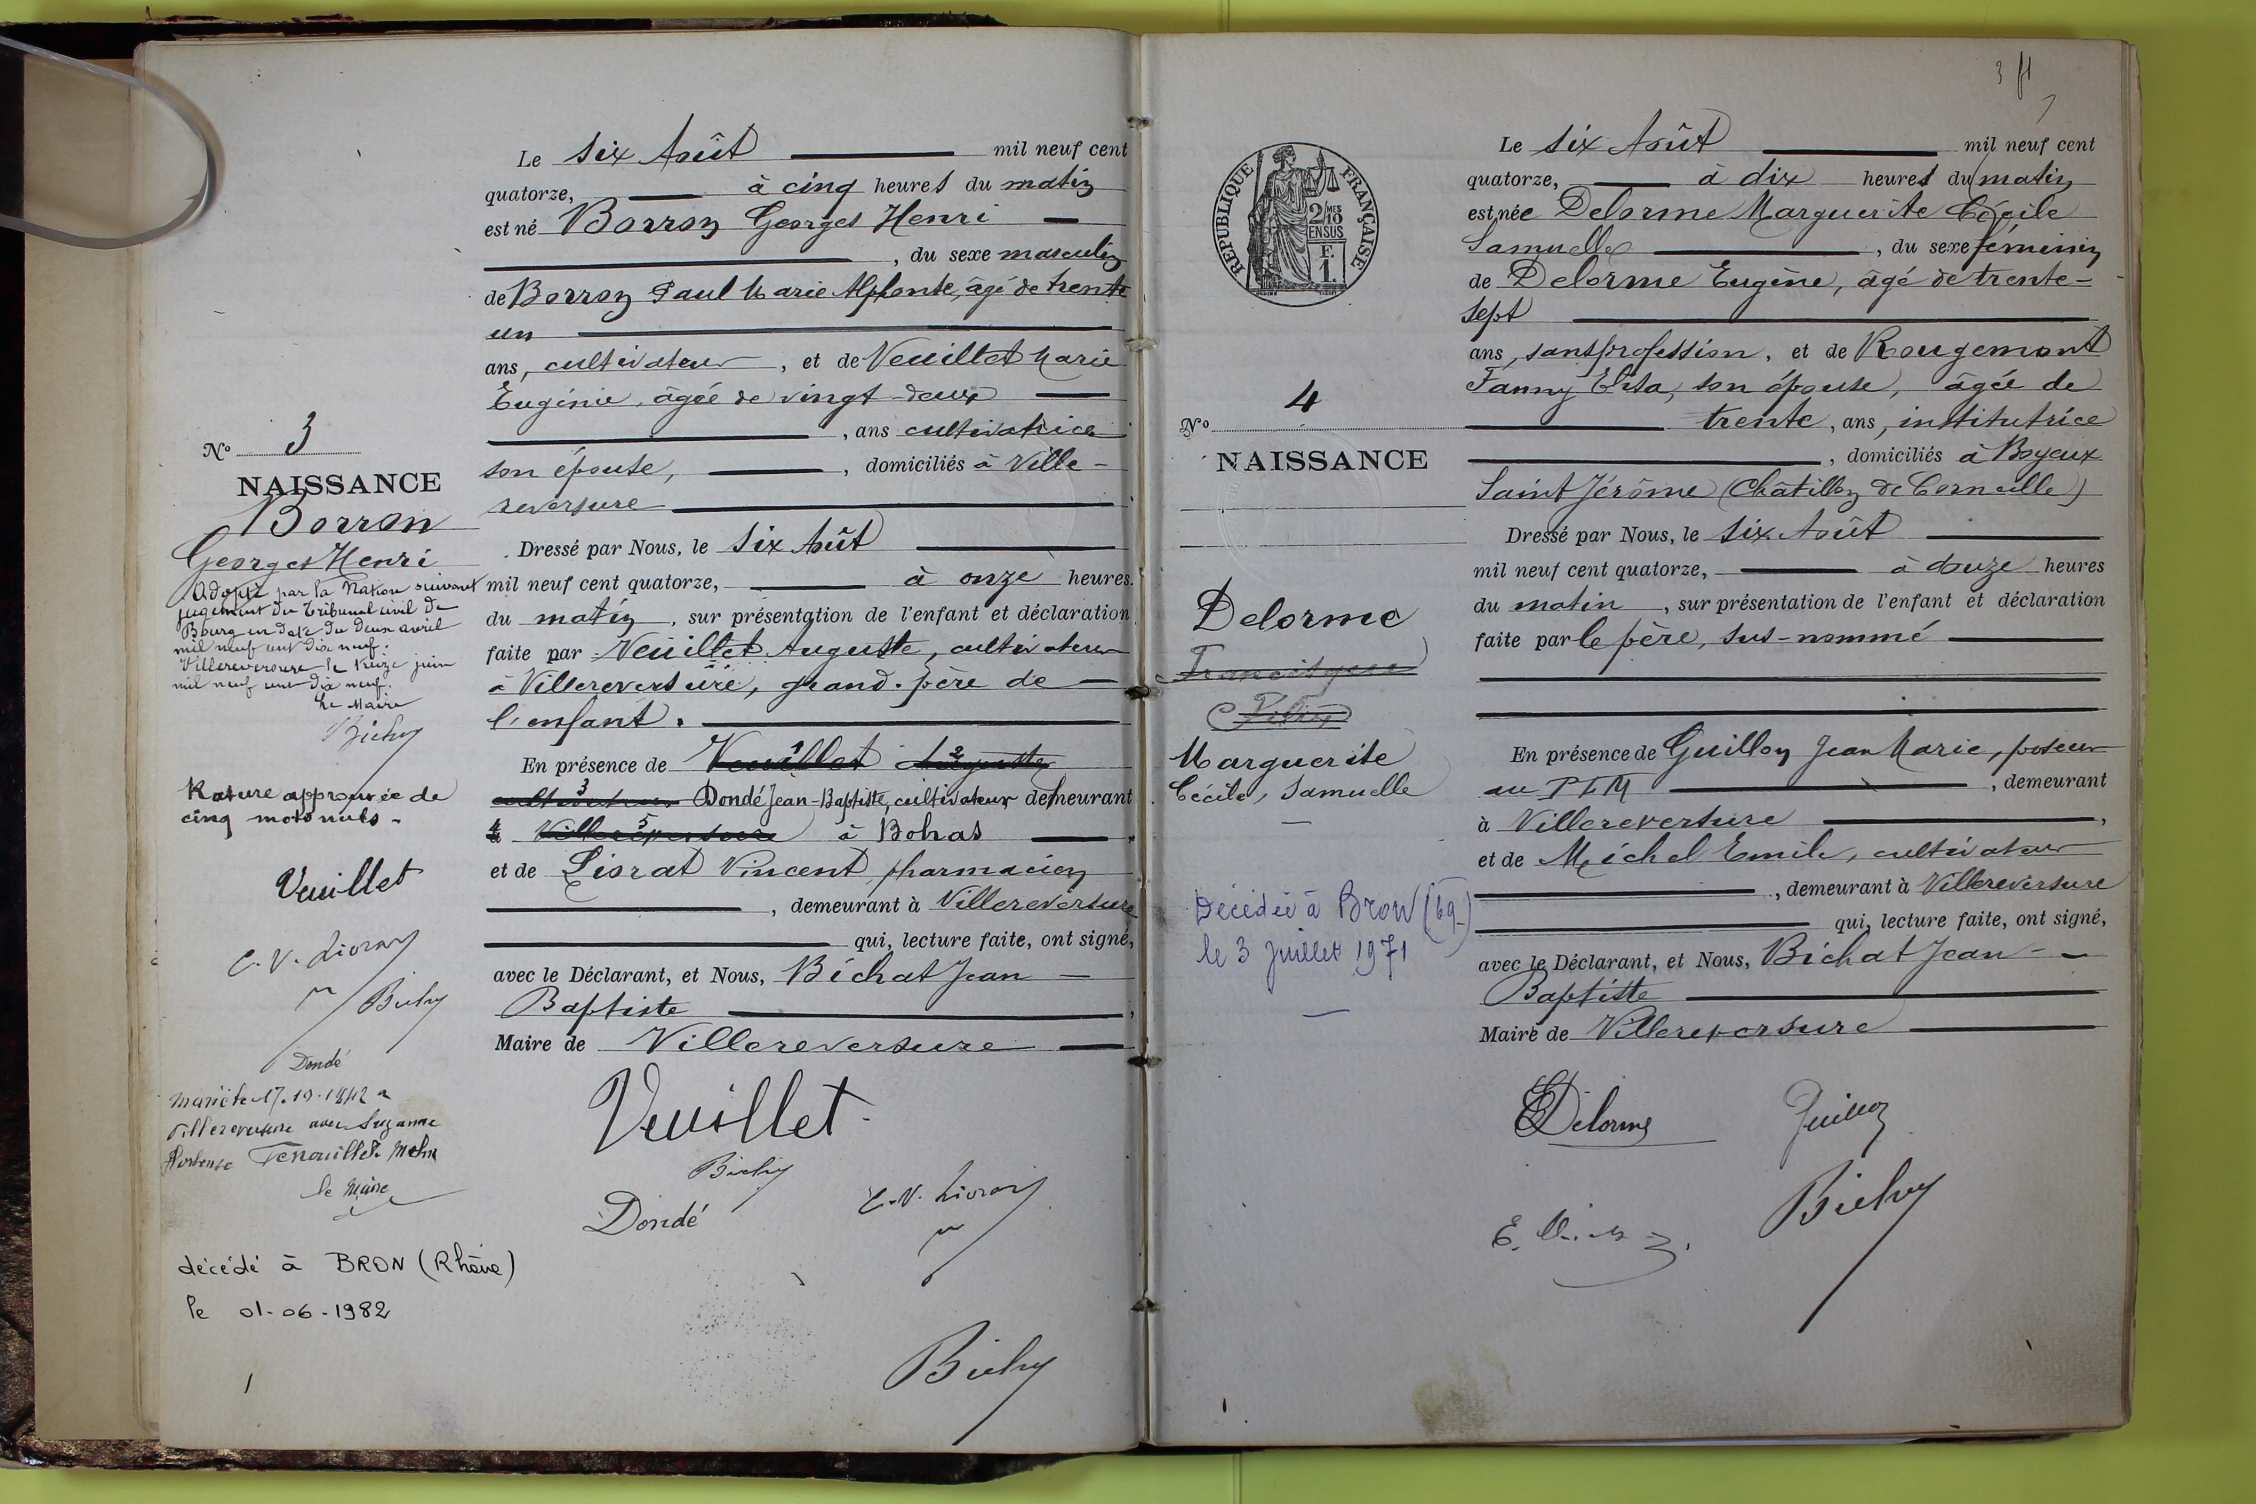 Le six Août mil neuf cent
quatorze, à cinq heures du matin
est né Borron Georges Henri
, du sexe masculin
de Borron Paul Marie Alphonse, âgé de trente
un
ans, cultivateur, et de Veuillet Marie
Eugénie, âgée de vingt-deux
, ans cultivatrice
son épouse, , domiciliés à Ville-
reversure
Dressé par Nous, le six Août
mil neuf cent quatorze, à onze heures
du matin, sur présentation de l'enfant et déclaration
faite par Veuillet Auguste, cultivateur
à Villereversure, grand-père de
l'enfant.
En présence de Veuillet Auguste
cultivateur Dondé Jean-Baptiste, cultivateur demeurant
à Villereversure à Bohas
et de Liorat Vincent, pharmacien
, demeurant à Villereversure
qui, lecture faite, ont signé,
avec le Déclarant, et Nous, Bichat Jean
Baptiste,
Maire de Villereversure
Veuillet
Bichat
Dondé
C. V. Liorat
Bichat
No 3
NAISSANCE
Borron
Georges Henri
Adopté par la Nation suivant
jugement du Tribunal civil de
Bourg en date du deux avril
mil neuf cent dix neuf.
Villereversure le treize juin
mil neuf cent dix neuf.
Le Maire
Bichat
Rature approuvée de
cinq mots nuls.
Veuillet
C. V. Liorat
Bichat
Dondé
Marié le 17.10.1942 à
Villereversure avec Suzanne
Hortense
le Maire
décédé à BRON (Rhône)
le 01-06-1982
3
RÉPUBLIQUE FRANÇAISE
2/10 MES
EN SUS
F.
1.
No 4
NAISSANCE
Delorme
Marguerite
Cécile, Samuelle
Décédée à Bron (69)
le 3 juillet 1971
Le six Août mil neuf cent
quatorze, à dix heures du matin
est née Delorme Marguerite Cécile
Samuelle, du sexe féminin
de Delorme Eugène, âgé de trente-
sept
ans, sans profession, et de Rougemont
Fanny Elisa, son épouse, âgée de
trente, ans, institutrice
, domiciliés à Boyeux
Saint Jérôme (Châtillon de Corneille)
Dressé par Nous, le six Août
mil neuf cent quatorze, à douze heures
du matin, sur présentation de l'enfant et déclaration
faite par le père, sus-nommé
En présence de Guillon Jean Marie, poseur
au PLM, demeurant
à Villereversure,
et de Michel Emile, cultivateur
, demeurant à Villereversure
qui, lecture faite, ont signé,
avec le Déclarant, et Nous, Bichat Jean-
Baptiste
Maire de Villereversure
EDelorme
Guillon
Bichat